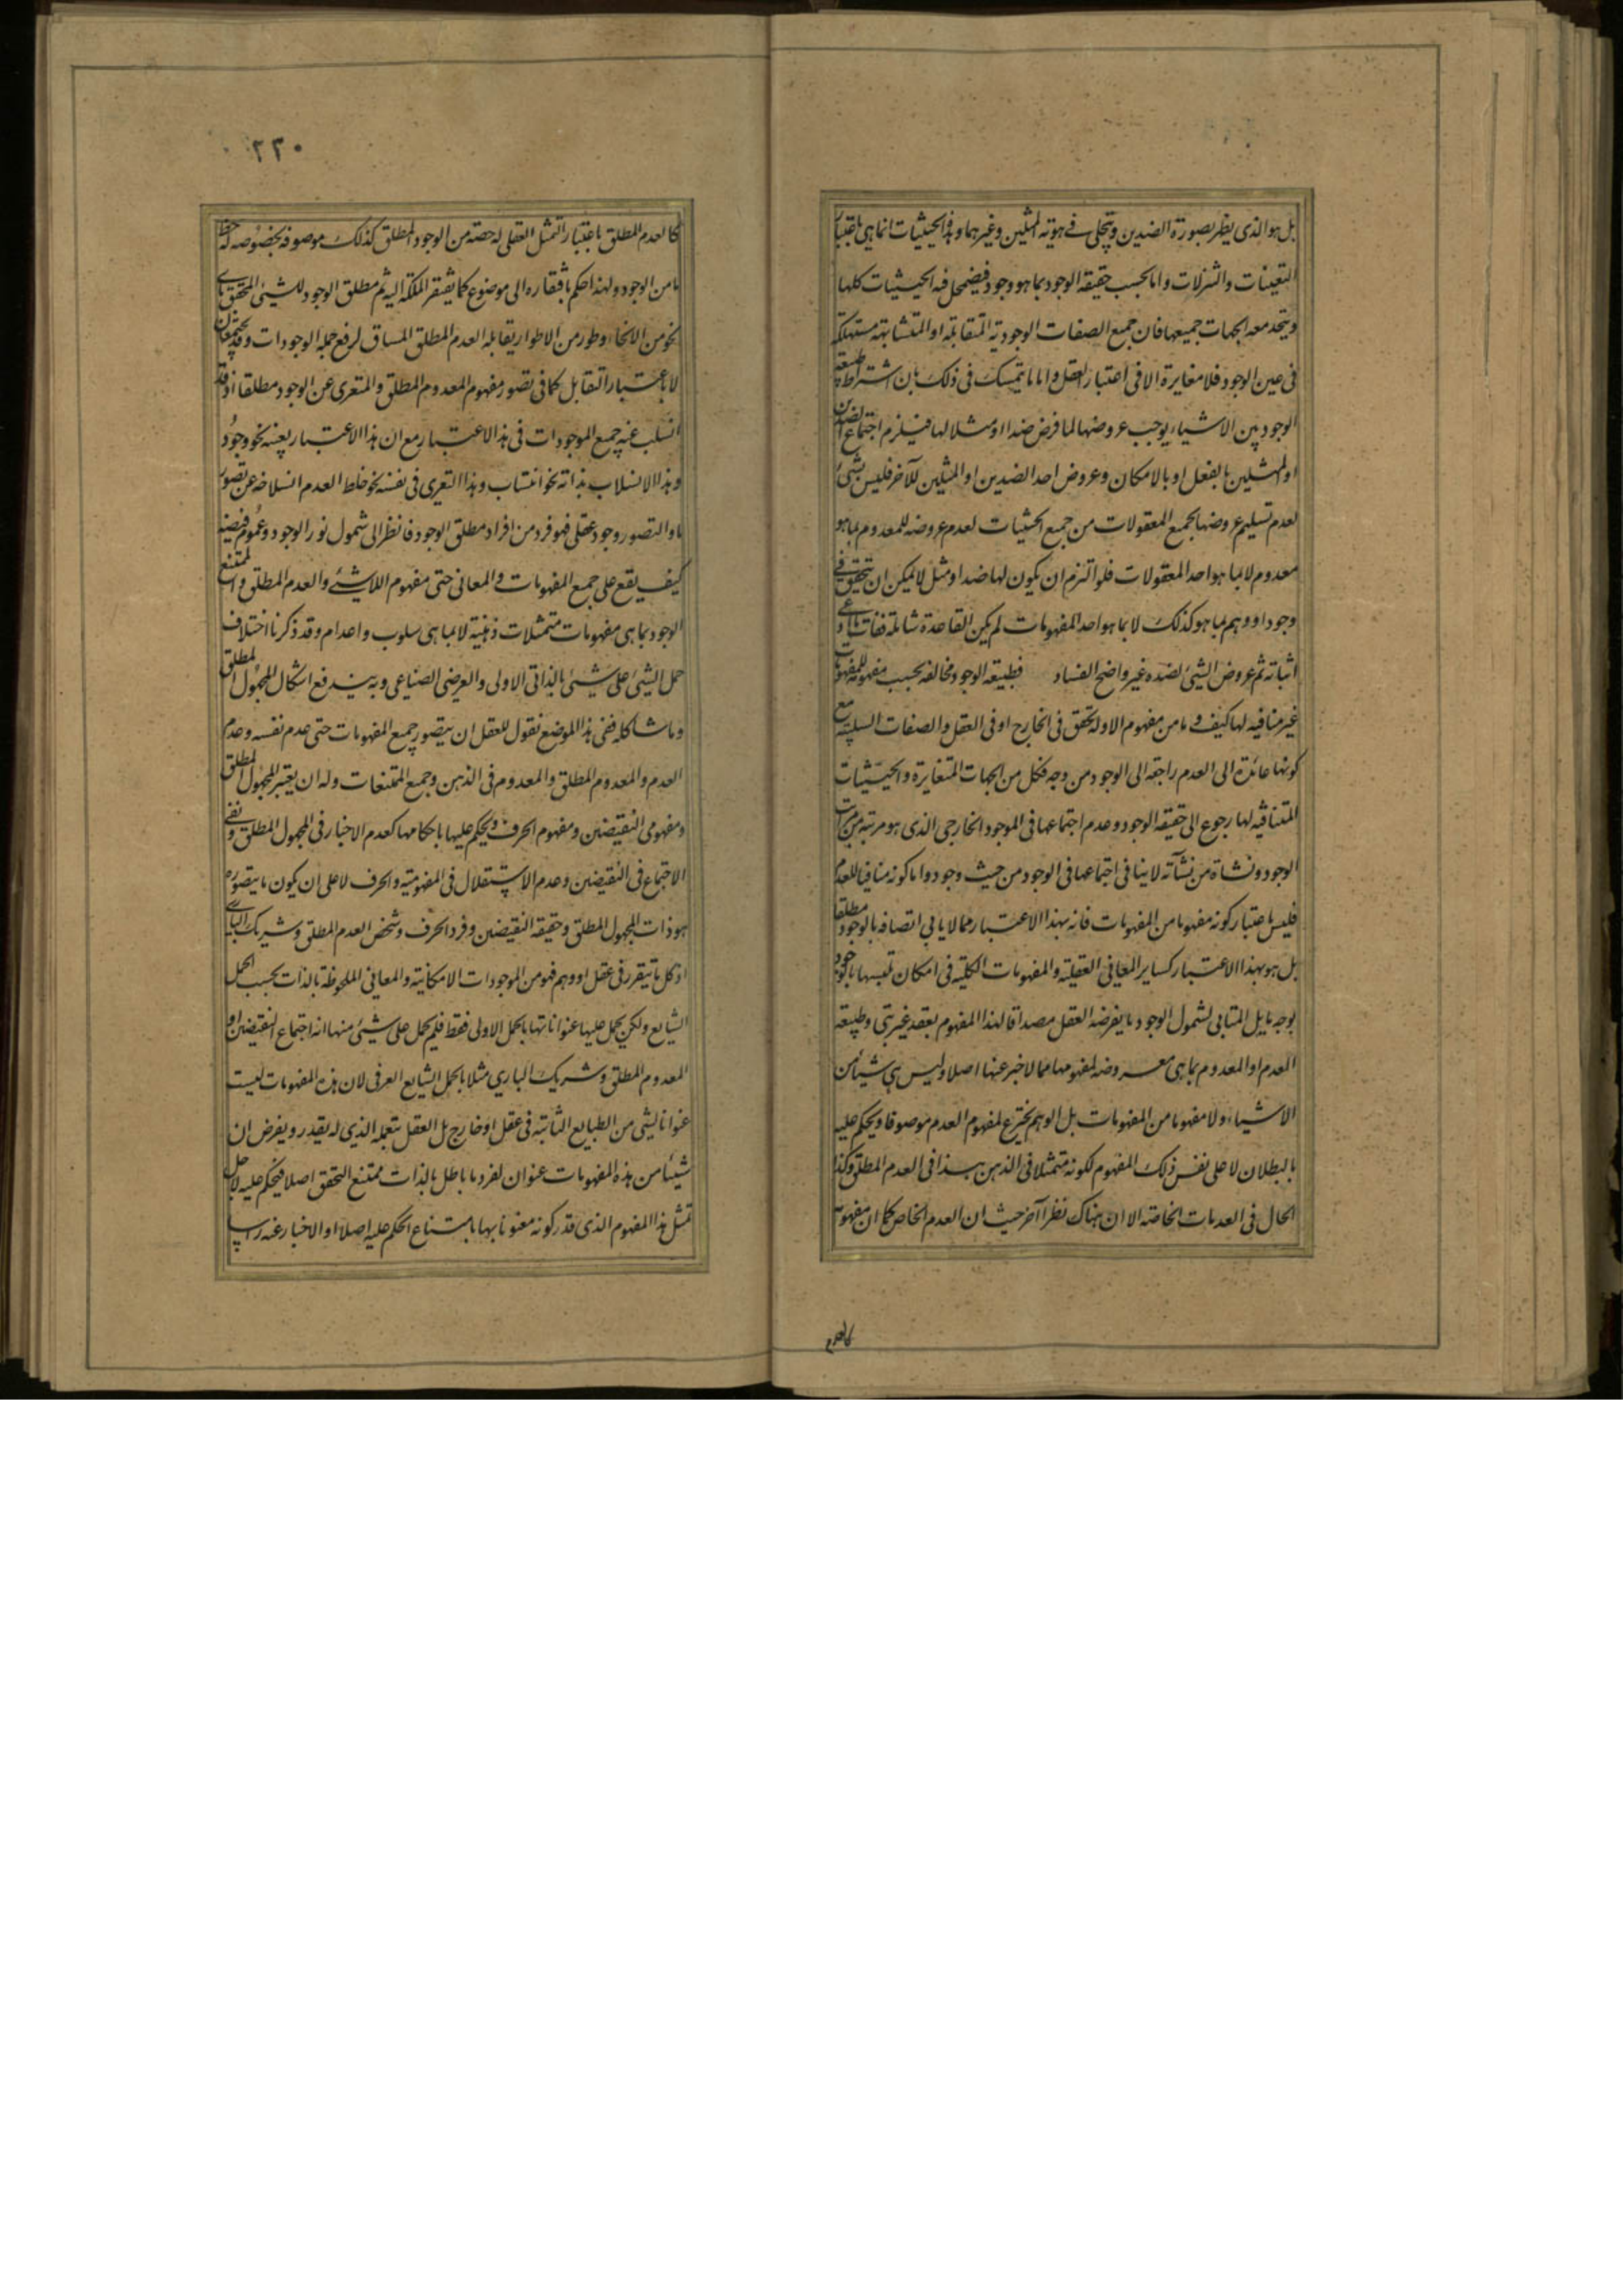 بل هو الذی یظهر بصورة الضدین ویتجلی فی هویة المثلین وغیرهما وهذه الحیثیات انما هی باعتبار
التعینات والتنزلات واما بحسب حقیقة الوجود بما هو وجود فیضمحل فیه الحیثیات کلها
ویتحد معه الجهات جمیعها فان جمیع الصفات الوجودیة المتقابلة او المتشابهة مستهلکة
فی عین الوجود فلا مغایرة الا فی اعتبار العقل واما ما یتمسک فی ذلک بان اشتراط طبیعة
الوجود بین الاشیاء یوجب عروضها لما فرض ضدا او مثلا لها فیلزم اجتماع الضدین
او المثلین بالفعل او بالامکان وعروض احد الضدین او المثلین للآخر فلیس بشیء
لعدم تسلیم عروضها لجمیع المعقولات من جمیع الحیثیات لعدم عروضه للمعدوم بما هو
معدوم لا بما هو احد المعقولات فلو التزم ان یکون لها ضد او مثل لا یمکن ان یتحقق فی
وجود او وهم بما هو کذلک لا بما هو احد المفهومات لم یکن القاعدة شاملة ففات ما ادعی
اثباته ثم عروض الشیء لضده غیر واضح الفساد فطبیعة الوجود مخالفه بحسب مفهومه للمفهومات
غیر منافیة لها کیف وما من مفهوم الا وله تحقق فی الخارج او فی العقل والصفات السلبیة مع
کونها عائدة الی العدم راجعة الی الوجود من وجه فکل من الجهات المتغایرة والحیثیات
المتنافیة لها رجوع الی حقیقة الوجود وعدم اجتماعها فی الموجود الخارجی الذی هو مرتبة من مراتب
الوجود ونشاة من نشآته لا ینافی اجتماعها فی الوجود من حیث وجود واما کونه منافیا للعدم
فلیس باعتبار کونه مفهوما من المفهومات فانه بهذا الاعتبار مما لا یابی اتصافه بالوجود مطلقا
بل هو بهذا الاعتبار کسایر المعانی العقلیة والمفهومات الکلیة فی امکان تلبسها بالوجود
بوجه ما بل المتابی لشمول الوجود ما یفرضه العقل مصداقا لهذا المفهوم بعقد غیر بتی وطبیعة
العدم او المعدوم بما هی معروضه لمفهومها مما لا خبر عنها اصلا ولیس هی شیئا من
الاشیاء ولا مفهوما من المفهومات بل الوهم یخترع لمفهوم العدم موصوفا ویحکم علیه
بالبطلان لا علی نفس ذلک المفهوم لکونه متمثلا فی الذهن هذا فی العدم المطلق وکذا
الحال فی العدمات الخاصة الا ان هناک نظرا آخر حیث ان العدم الخاص کما ان مفهومه
کالعدم
۲۲۰
کالعدم المطلق باعتبار التمثل العقلی له حصة من الوجود المطلق کذلک موصوفه بخصوصه له حظ
ما من الوجود ولهذا حکم بافتقاره الی موضوع کما یفتقر الملکة الیه ثم مطلق الوجود للشیء المحقق بای
نحو من الانحاء وطور من الاطوار یقابله العدم المطلق المساق لرفع جملة الوجودات وقد یجتمعان
لا باعتبار التقابل کما فی تصور مفهوم المعدوم المطلق والمتعری عن الوجود مطلقا اذ قد
انسلب عنه جمیع الموجودات فی هذا الاعتبار مع ان هذا الاعتبار بعینه نحو وجود
وهذا الانسلاب بذاته نحو انتساب وهذا التعری فی نفسه نحو خلط العدم انسلاخه عن تصور
ما والتصور وجود عقلی فهو فرد من افراد مطلق الوجود فانظر الی شمول نور الوجود وعموم فیضه
کیف یقع علی جمیع المفهومات والمعانی حتی مفهوم اللاشیء والعدم المطلق والممتنع
الوجود بما هی مفهومات متمثلات ذهنیة لا بما هی سلوب واعدام وقد ذکرنا اختلاف
حمل الشیء علی شیء بالذاتی الاولی والعرضی الصناعی وبه یندفع اشکال المجهول المطلق
وما شاکله ففی هذا الموضع نقول للعقل ان یتصور جمیع المفهومات حتی عدم نفسه وعدم
العدم والمعدوم المطلق والمعدوم فی الذهن وجمیع الممتنعات وله ان یعتبر المجهول المطلق
ومفهومی النقیضین ومفهوم الحرف ویحکم علیها باحکامها کعدم الاخبار فی المجهول المطلق ونفی
الاجتماع فی النقیضین وعدم الاستقلال فی المفهومیة والحرف لا علی ان یکون ما یتصوره
هو ذات المجهول المطلق وحقیقة النقیضین وفرد الحرف وشخص العدم المطلق وشریک الباری
اذ کل ما یتقرر فی عقل او وهم فهو من الموجودات الامکانیة والمعانی الملحوظة بالذات بحسب الحمل
الشایع ولکن یحمل علیها عنواناتها بالحمل الاولی فقط فلم یحمل علی شیء منها انه اجتماع النقیضین او
المعدوم المطلق وشریک الباری مثلا بالحمل الشایع العرفی لان هذه المفهومات لیست
عنوانا لشی من الطبایع الثابتة فی عقل او خارج بل العقل بتعمله الذی له یقدر ویفرض ان
شیئا من هذه المفهومات عنوان لفرد ما باطل بالذات ممتنع التحقق اصلا فیحکم علیه لاجل
تمثل هذا المفهوم الذی قدر کونه معنونا بها بامتناع الحکم علیه اصلا او الاخبار عنه راسا